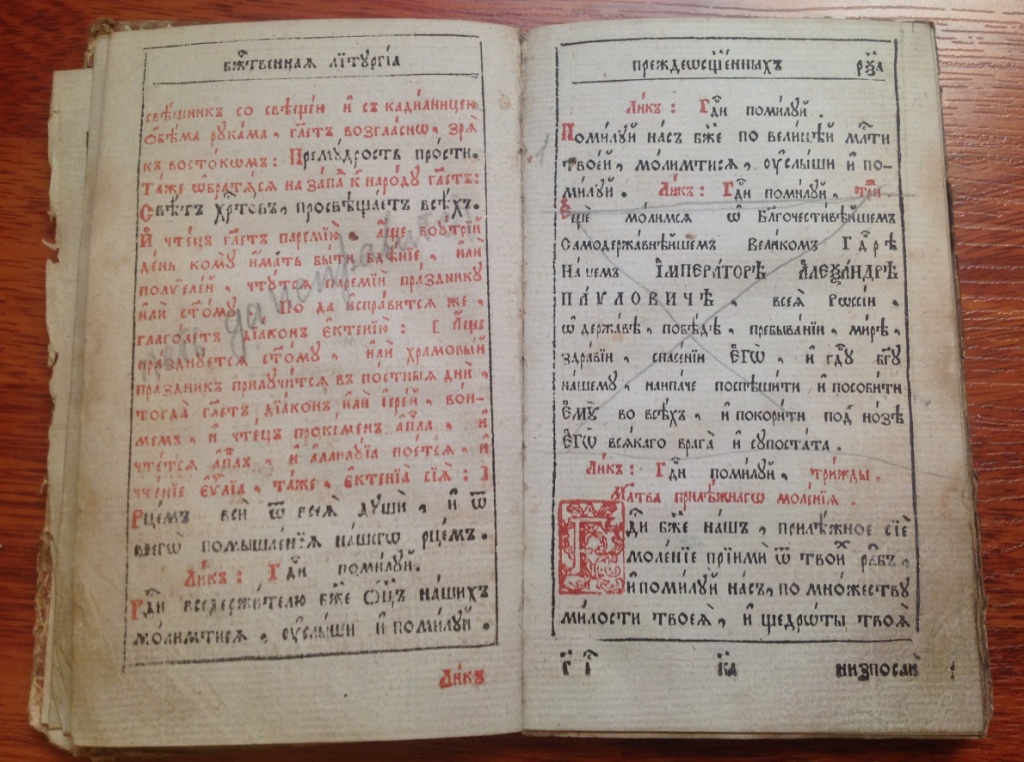 бжⷭ҇твеннаѧ лїтꙋргїа
свѣщникъ со свѣщею и҆ съ кадилницею
ѻ҆бѣма рꙋкама, гл҃етъ возгласнѡ, зрѧ
къ востокѡмъ: Премꙋдрость прости.
Таже ѡ҆братѧсѧ на запаⷣ к народꙋ гл҃етъ:
Свѣтъ хрⷭ҇товъ, просвѣщаетъ всѣхъ.
И҆ чтецъ гл҃етъ паремїю. а҆ще воꙋтрїй
день комꙋ и҆мать быти бдѣнїе, и҆лѝ
полѷелей, чтꙋтсѧ паремїи праздникꙋ
и҆лѝ ст҃омꙋ. По да и҆справитсѧ же,
глаголетъ дїаконъ е҆ктенїю: А҆ще
празднꙋетсѧ ст҃омꙋ, и҆лѝ храмовый
праздникъ прилꙋчитсѧ въ постныѧ дни,
тогда гл҃етъ дїаконъ и҆лѝ і҆ерей, вон-
мемъ, и҆ чтецъ прокменъ а҆пⷭ҇ла, и҆
чтетсѧ а҆пⷭ҇лъ, и҆ аллилꙋїа поетсѧ, и҆
чтенїе е҆ѵⷢ҇лїа, таже, е҆ктенїа сїѧ:
Рцемъ вси ѿ всеѧ дꙋши, и҆ ѿ
всегѡ помышленїѧ нашегѡ рцемъ.
Ликъ: Гдⷭ҇и помилꙋй.
Гдⷭ҇и вседержителю бж҃е ѻ҆ц҃ъ нашихъ
молимтисѧ, ѹ҆слыши и҆ помилꙋй.
Ликъ
преждеѡсщ҃енныхъ рѯ҃а
Ликъ: Гдⷭ҇и помилꙋй.
Помилꙋй насъ бж҃е по велицѣй млⷭ҇ти
твоей, молимтисѧ, ѹ҆слыши и҆ по-
милꙋй. Ликъ: Гдⷭ҇и помилꙋй, три
Е҆ще молимсѧ ѡ҆ Бл҃гочестивѣйшемъ
Самодержавнѣйшемъ Великомъ Гдⷭ҇рѣ
Нашемъ І҆МПЕРАТОРѢ А҆ЛЕѮАНДРѢ
ПАѴЛОВИЧѢ, всеѧ Рѡссїи,
ѡ҆ державѣ, побѣдѣ, пребыванїи, мирѣ,
здравїи, спасенїи Е҆ГѠ̀, и҆ гдⷭ҇ꙋ бг҃ꙋ
нашемꙋ, наипаче поспѣшити и҆ пособити
Е҆МꙊ̀ во всѣхъ, и҆ покорити под нозѣ
Е҆ГѠ̀ всѧкаго врага̀ и҆ сꙋпостата.
Ликъ: Гдⷭ҇и помилꙋй, трижды.
Млт҃ва прилѣжнагѡ моленїѧ.
Гдⷭ҇и бж҃е нашъ, прилѣжное сїе
моленїе прїими ѿ твоиⷯ рабъ,
и҆ помилꙋй насъ, по множествꙋ
милости твоеѧ, и҆ щедрѡты твоѧ
к҃а низпосли